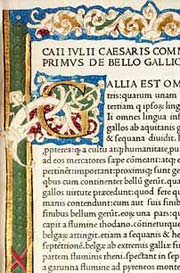 CAII IVLII CAESARIS COMM
PRIMVS DE BELLO GALLIC
GALLIA EST OM
tris: quarum unam
tertiam q ipsoȝ lingu
Ii omnes lingua inf
gallos ab aquitanis
& sequana diuidit. h
ppterea q a cultu atq; humanitate pui
ad eos mercatores sæpe cōmeant: atq; e
pertinēt important: proximiq; sunt ger
qbus cum continenter bellū gerunt: qua
gallos uirtute præcedunt: quod fere quo
manis contendunt: cum aut suis finib
finibus bellum gerūt. eoȝ una pars: qu
capit a flumine rhodano: cōtinetur ga
belgaȝ: attingit. etiam a sequanis & he
septētrionē. belgæ ab extremis galliæ fi
partem fluminis rheni. spectāt in sept
a garunna flumine ad pyreneos mont